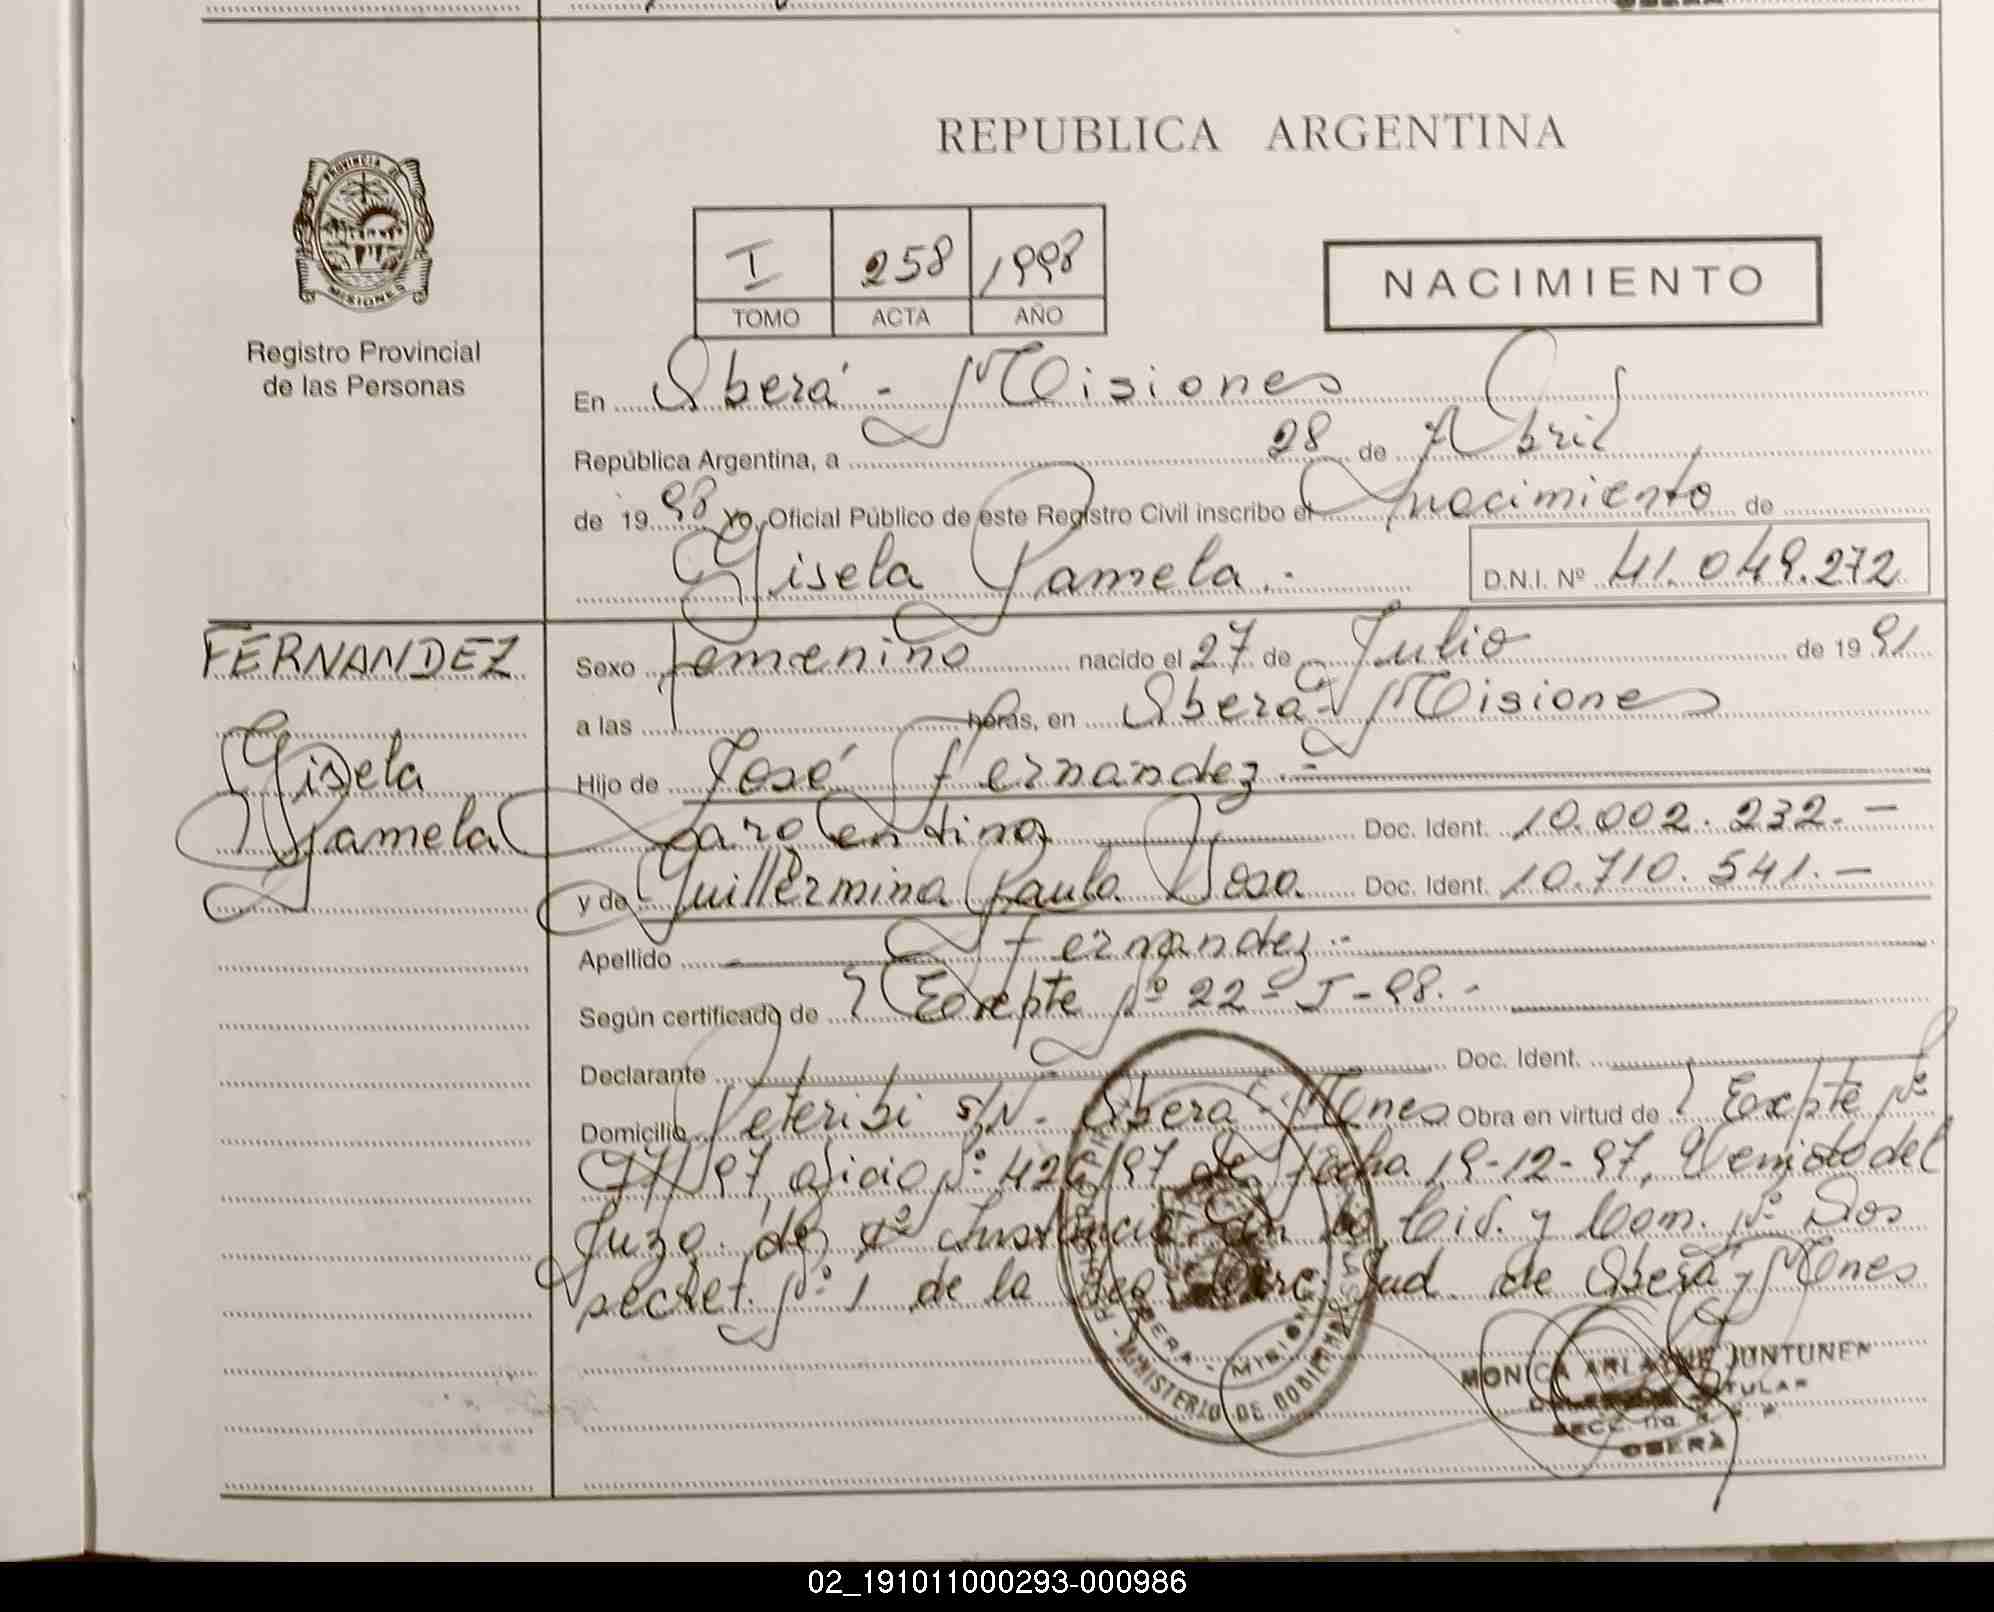 REPUBLICA ARGENTINA
PROVINCIA DE
MISIONES
Registro Provincial
de las Personas
I 258 1998
TOMO ACTA AÑO
NACIMIENTO
En Oberá - Misiones
República Argentina, a 28 de Abril
de 1998 Yo, Oficial Público de este Registro Civil inscribo el nacimiento de
Gisela Pamela.-
D.N.I. Nº 41.049.272
FERNANDEZ
Gisela
Pamela
Sexo femenino nacido el 27 de Julio de 1991
a las horas, en Oberá - Misiones
Hijo de José Fernandez.=
argentina Doc. Ident. 10.002.232.-
y de Guillermina Paula Doc. Ident. 10.710.541.-
Apellido Fernandez.-
Según certificado de Expte Nº 22-I-98.-
Declarante Doc. Ident.
Domicilio Peteribi s/N- Oberá - Mnes Obra en virtud de Expte Nº
97 oficio Nº 426/97 de fecha 19-12-97, del
Juzg. de 1º Instancia en lo Civ. y Com. Nº Dos
secret. Nº 1 de la Circ. Jud. de Oberá Mnes
MINISTERIO DE GOBIERNO
OBERA - MISIONES
MONICA JUNTUNEN
TITULAR
OBERÁ
02_191011000293-000986